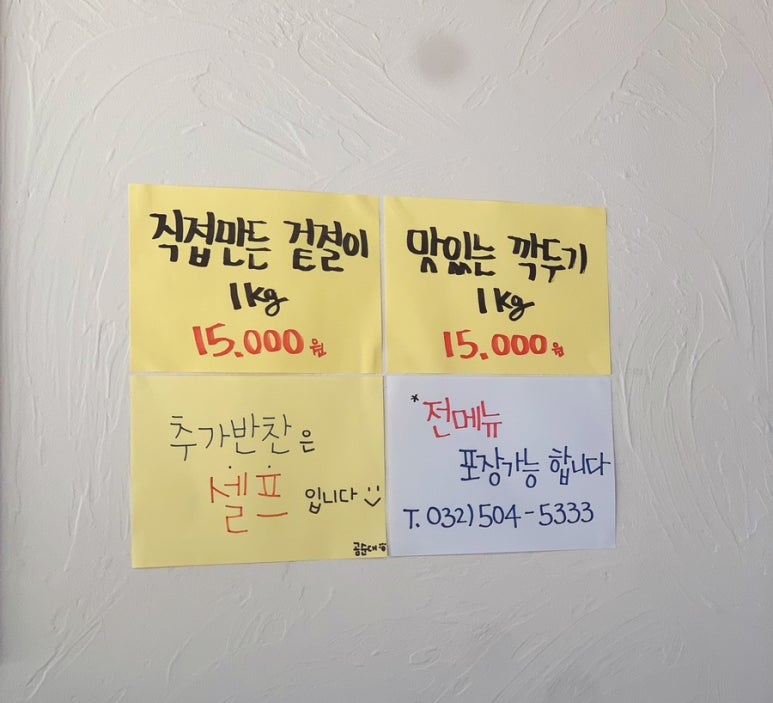 직접만든 겉절이
1kg
15.000원
맛있는 깍두기
1kg
15.000원
추가반찬은
셀프 입니다
*전메뉴
포장가능 합니다
T. 032)504-5333